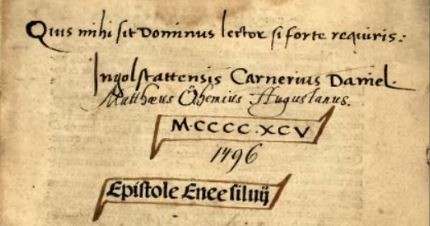 Quis mihi sit Dominus lector si forte requiris:
Ingolstattensis Carnerius Daniel.
Matthæus Öhemius Augustanus.
M·CCCC·XCV
1496
Epistole Enee siluij